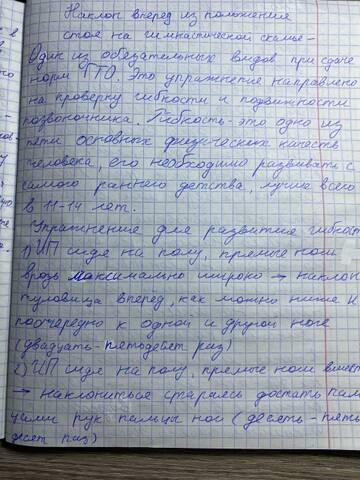 Наклон вперед из положения
стоя на гимнастической скамье -
Один из обязательных видов при сдаче
норм ГТО. Это упражнение направлено
на проверку гибкости и подвижности
позвоночника. Гибкость - это одно из
пяти основных физических качеств
человека, его необходимо развивать с
самого раннего детства, лучше всего
в 11-14 лет.
Упражнение для развития гибкости
1) ИП сидя на полу, прямые ноги
врозь максимально широко → наклон
туловища вперед, как можно ниже к
поочередно к одной и другой ноге
(двадцать - пятьдесят раз)
2) ИП сидя на полу, прямые ноги вместе
→ наклониться стараясь достать паль
цами рук пальцы ног (десять - пять
десят раз)